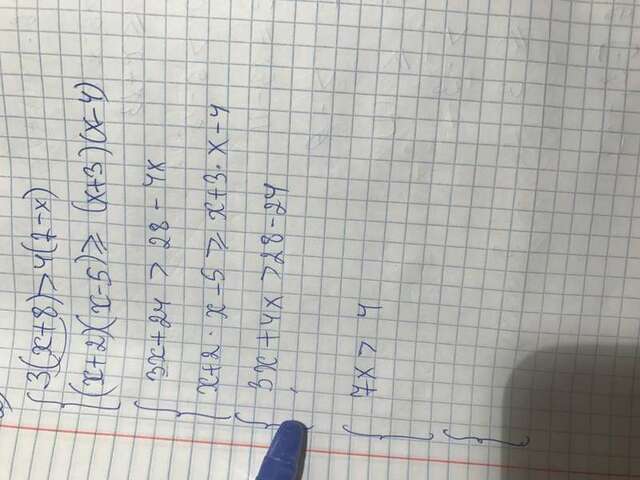 3(x+8)>4(7-x)
(x+2)(x-5)⩾ (x+3)(x-4)
3x+24 > 28-4x
x+2· x-5 ⩾ x+3· x-4
3x+4x>28-24
7x> 4